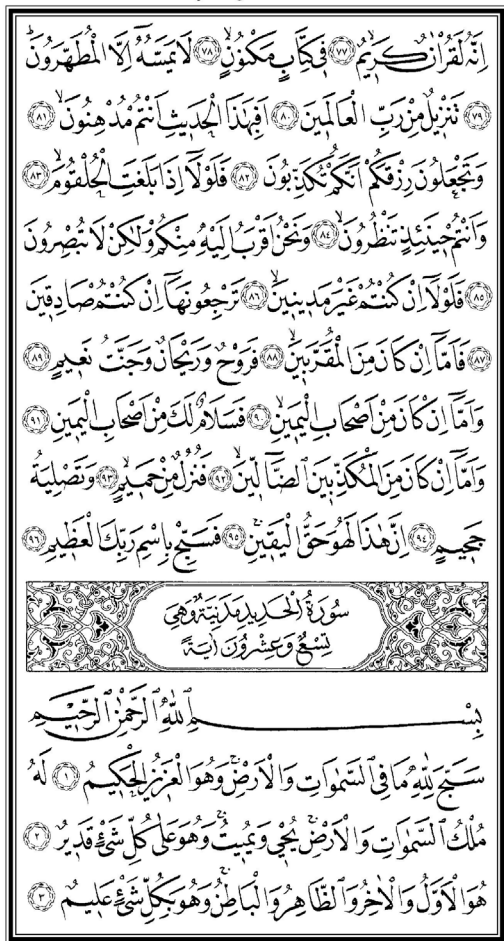 اِنَّهُ لَقُرْاٰنٌ كَرِيمٌ ﴿٧٧﴾ فِي كِتَابٍ مَكْنُونٍ ﴿٧٨﴾ لَا يَمَسُّهُٓ اِلَّا الْمُطَهَّرُونَ
﴿٧٩﴾ تَنْزِيلٌ مِنْ رَبِّ الْعَالَمِينَ ﴿٨٠﴾ اَفَبِهٰذَا الْحَدِيثِ اَنْتُمْ مُدْهِنُونَ ﴿٨١﴾
وَتَجْعَلُونَ رِزْقَكُمْ اَنَّكُمْ تُكَذِّبُونَ ﴿٨٢﴾ فَلَوْلَٓا اِذَا بَلَغَتِ الْحُلْقُومَ ﴿٨٣﴾
وَاَنْتُمْ حِينَئِذٍ تَنْظُرُونَ ﴿٨٤﴾ وَنَحْنُ اَقْرَبُ اِلَيْهِ مِنْكُمْ وَلٰكِنْ لَا تُبْصِرُونَ
﴿٨٥﴾ فَلَوْلَٓا اِنْ كُنْتُمْ غَيْرَ مَدِينِينَ ﴿٨٦﴾ تَرْجِعُونَهَٓا اِنْ كُنْتُمْ صَادِقِينَ
﴿٨٧﴾ فَاَمَّٓا اِنْ كَانَ مِنَ الْمُقَرَّبِينَ ﴿٨٨﴾ فَرَوْحٌ وَرَيْحَانٌ وَجَنَّتُ نَعِيمٍ ﴿٨٩﴾
وَاَمَّٓا اِنْ كَانَ مِنْ اَصْحَابِ الْيَمِينِ ﴿٩٠﴾ فَسَلَامٌ لَكَ مِنْ اَصْحَابِ الْيَمِينِ ﴿٩١﴾
وَاَمَّٓا اِنْ كَانَ مِنَ الْمُكَذِّبِينَ الضَّٓالِّينَ ﴿٩٢﴾ فَنُزُلٌ مِنْ حَمِيمٍ ﴿٩٣﴾ وَتَصْلِيَةُ
جَحِيمٍ ﴿٩٤﴾ اِنَّ هٰذَا لَهُوَ حَقُّ الْيَقِينِ ﴿٩٥﴾ فَسَبِّحْ بِاسْمِ رَبِّكَ الْعَظِيمِ ﴿٩٦﴾
سُورَةُ الْحَدِيدِ مَدَنِيَّةٌ وَهِيَ
تِسْعٌ وَعِشْرُونَ اٰيَةً
بِسْمِ اللّٰهِ الرَّحْمٰنِ الرَّحِيمِ
سَبَّحَ لِلّٰهِ مَا فِي السَّمٰوَاتِ وَالْاَرْضِ وَهُوَ الْعَزِيزُ الْحَكِيمُ ﴿١﴾ لَهُ
مُلْكُ السَّمٰوَاتِ وَالْاَرْضِ يُحْيِي وَيُمِيتُ وَهُوَ عَلٰى كُلِّ شَيْءٍ قَدِيرٌ ﴿٢﴾
هُوَ الْاَوَّلُ وَالْاٰخِرُ وَالظَّاهِرُ وَالْبَاطِنُ وَهُوَ بِكُلِّ شَيْءٍ عَلِيمٌ ﴿٣﴾